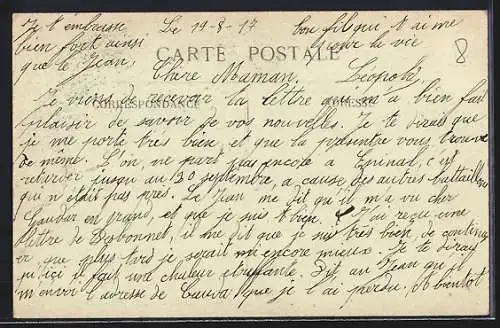 Je t'embrasse
bien fort ainsi
que le Jean,
Le 19-8-17
ton fils qui t'aime
pour la vie
8
CARTE POSTALE
Chère Maman. Léopold.
CORRESPONDANCE ADRESSE
Je viens de recevoir la lettre qui m'a bien fait
plaisir de savoir de vos nouvelles. Je te dirais que
je me porte très bien, et que la présente vous trouve
de même. L'on ne part pas encore a Epinal, c'est
retarder jusqu au 20 septembre, a cause des autres battaillons
qui n'était pas près. Le Jean me dit qu'il m'a vu cher
en grand, et que je suis bien. J'ai reçu une
lettre de Debonnet, il me dit que je suis très bien de continu
er que plus tard je serait encore mieux. Je te dirai
qu'ici il fait une chaleur étouffante. Dit au Jean qu'il
m'envoi l'adresse de que je l'ai perdu. A bientot